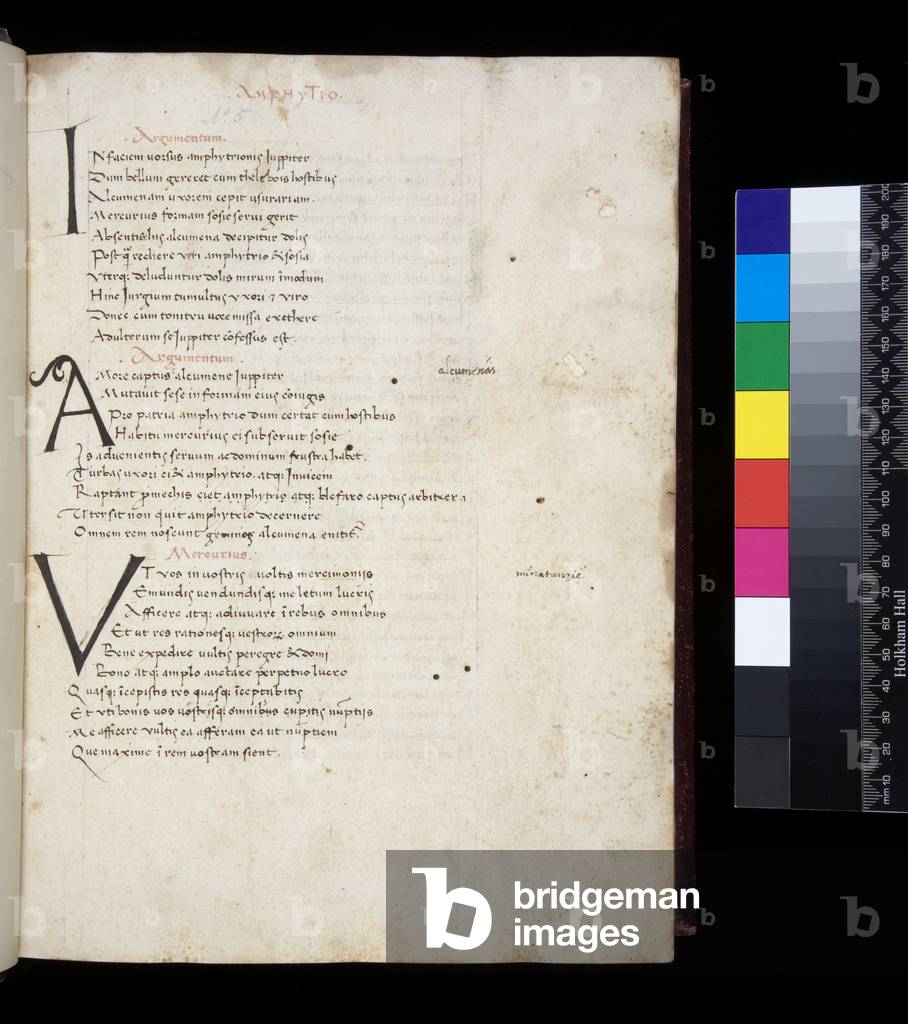 AMPHYTIO.
N° 5
Argumentum.
IN faciem uorsus amphytrionis Iuppiter
Dum bellum gereret cum thelebois hostibus
Alcumenam uxorem cepit usurariam.
Mercurius formam sosie serui gerit
Absentis his alcumena decipitur dolis
Postq̃ rediere ueri amphytrio & sosia
Vterq; deluduntur dolis mirum ĩmodum
Hinc Iurgium tumultus uxori ⁊ uiro
Donec cum tonitru uoce missa exethere
Adulterum se Iuppiter cõfessus est.
Argumentum.
AMore captus alcumene Iuppiter
Mutauit sese in formam eius coiugis
Pro patria amphytrio dum certat cum hostibus
Habitu mercurius ei subseruit sosie
Is aduenientis seruum ac dominum frustra habet.
Turbas uxori ciet amphytrio. atq; Inuicem
Raptant p mechis ciet amphytris atq; blefaro captus arbiter a
Vter sit non quit amphytrio decernere
Omnem rem noscunt geminos alcumena enitit̃
alcumenas
Mercurius.
VT uos in uostris uoltis mercimoniis
Emundis uendundisq; me letum lucris
Afficere atq; adiuuare ĩ rebus omnibus
Et ut res rationesq; uestrorꝝ omnium
Bene expedire uultis peregre & domi
Bono atq; amplo auctare perpetuo lucro
Quasq; ĩcepistis res quasq; ĩceptabitis
Et uti bonis uos uostrisq; omnibus cupitis nũptiis
Me afficere uultis ea afferam ea ut nũptiem
Que maxime ĩ rem uostram sient.
bridgeman
images
Holkham Hall
mm 10 20 30 40 50 60 70 80 90 100 110 120 130 140 150 160 170 180 190 200